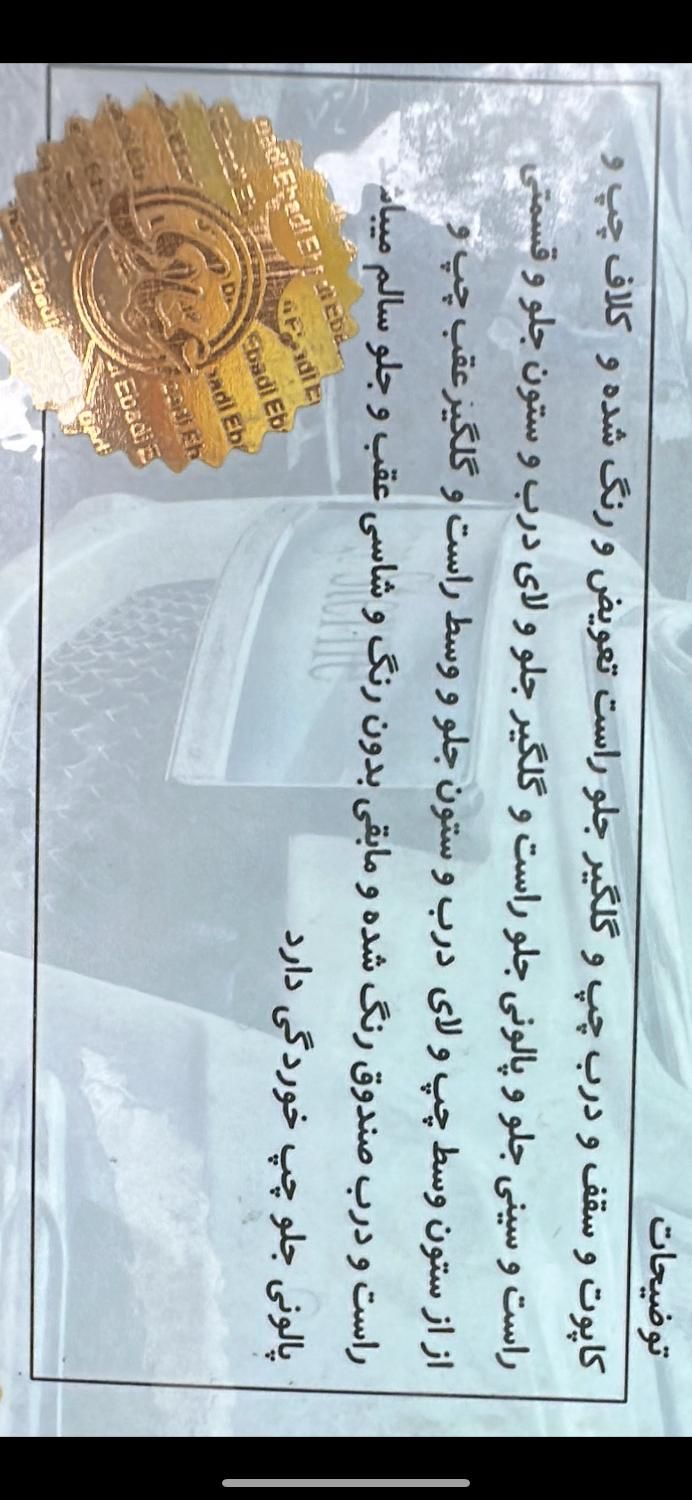 توضیحات
کاپوت و سقف و درب چپ و گلگیر جلو راست تعویض و رنگ شده و کلاف چپ و
راست و سینی جلو و پالونی جلو راست و گلگیر جلو و لای درب و ستون جلو و قسمتی
از از ستون وسط چپ و لای درب و ستون جلو و وسط راست و گلگیر عقب چپ و
راست و درب صندوق رنگ شده و مابقی بدون رنگ و شاسی عقب و جلو سالم
پالونی جلو چپ خوردگی دارد
Ebadi